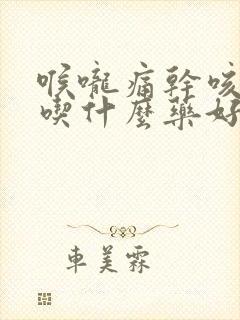 喉嚨痛幹咳
喫什麼藥好
車美霖